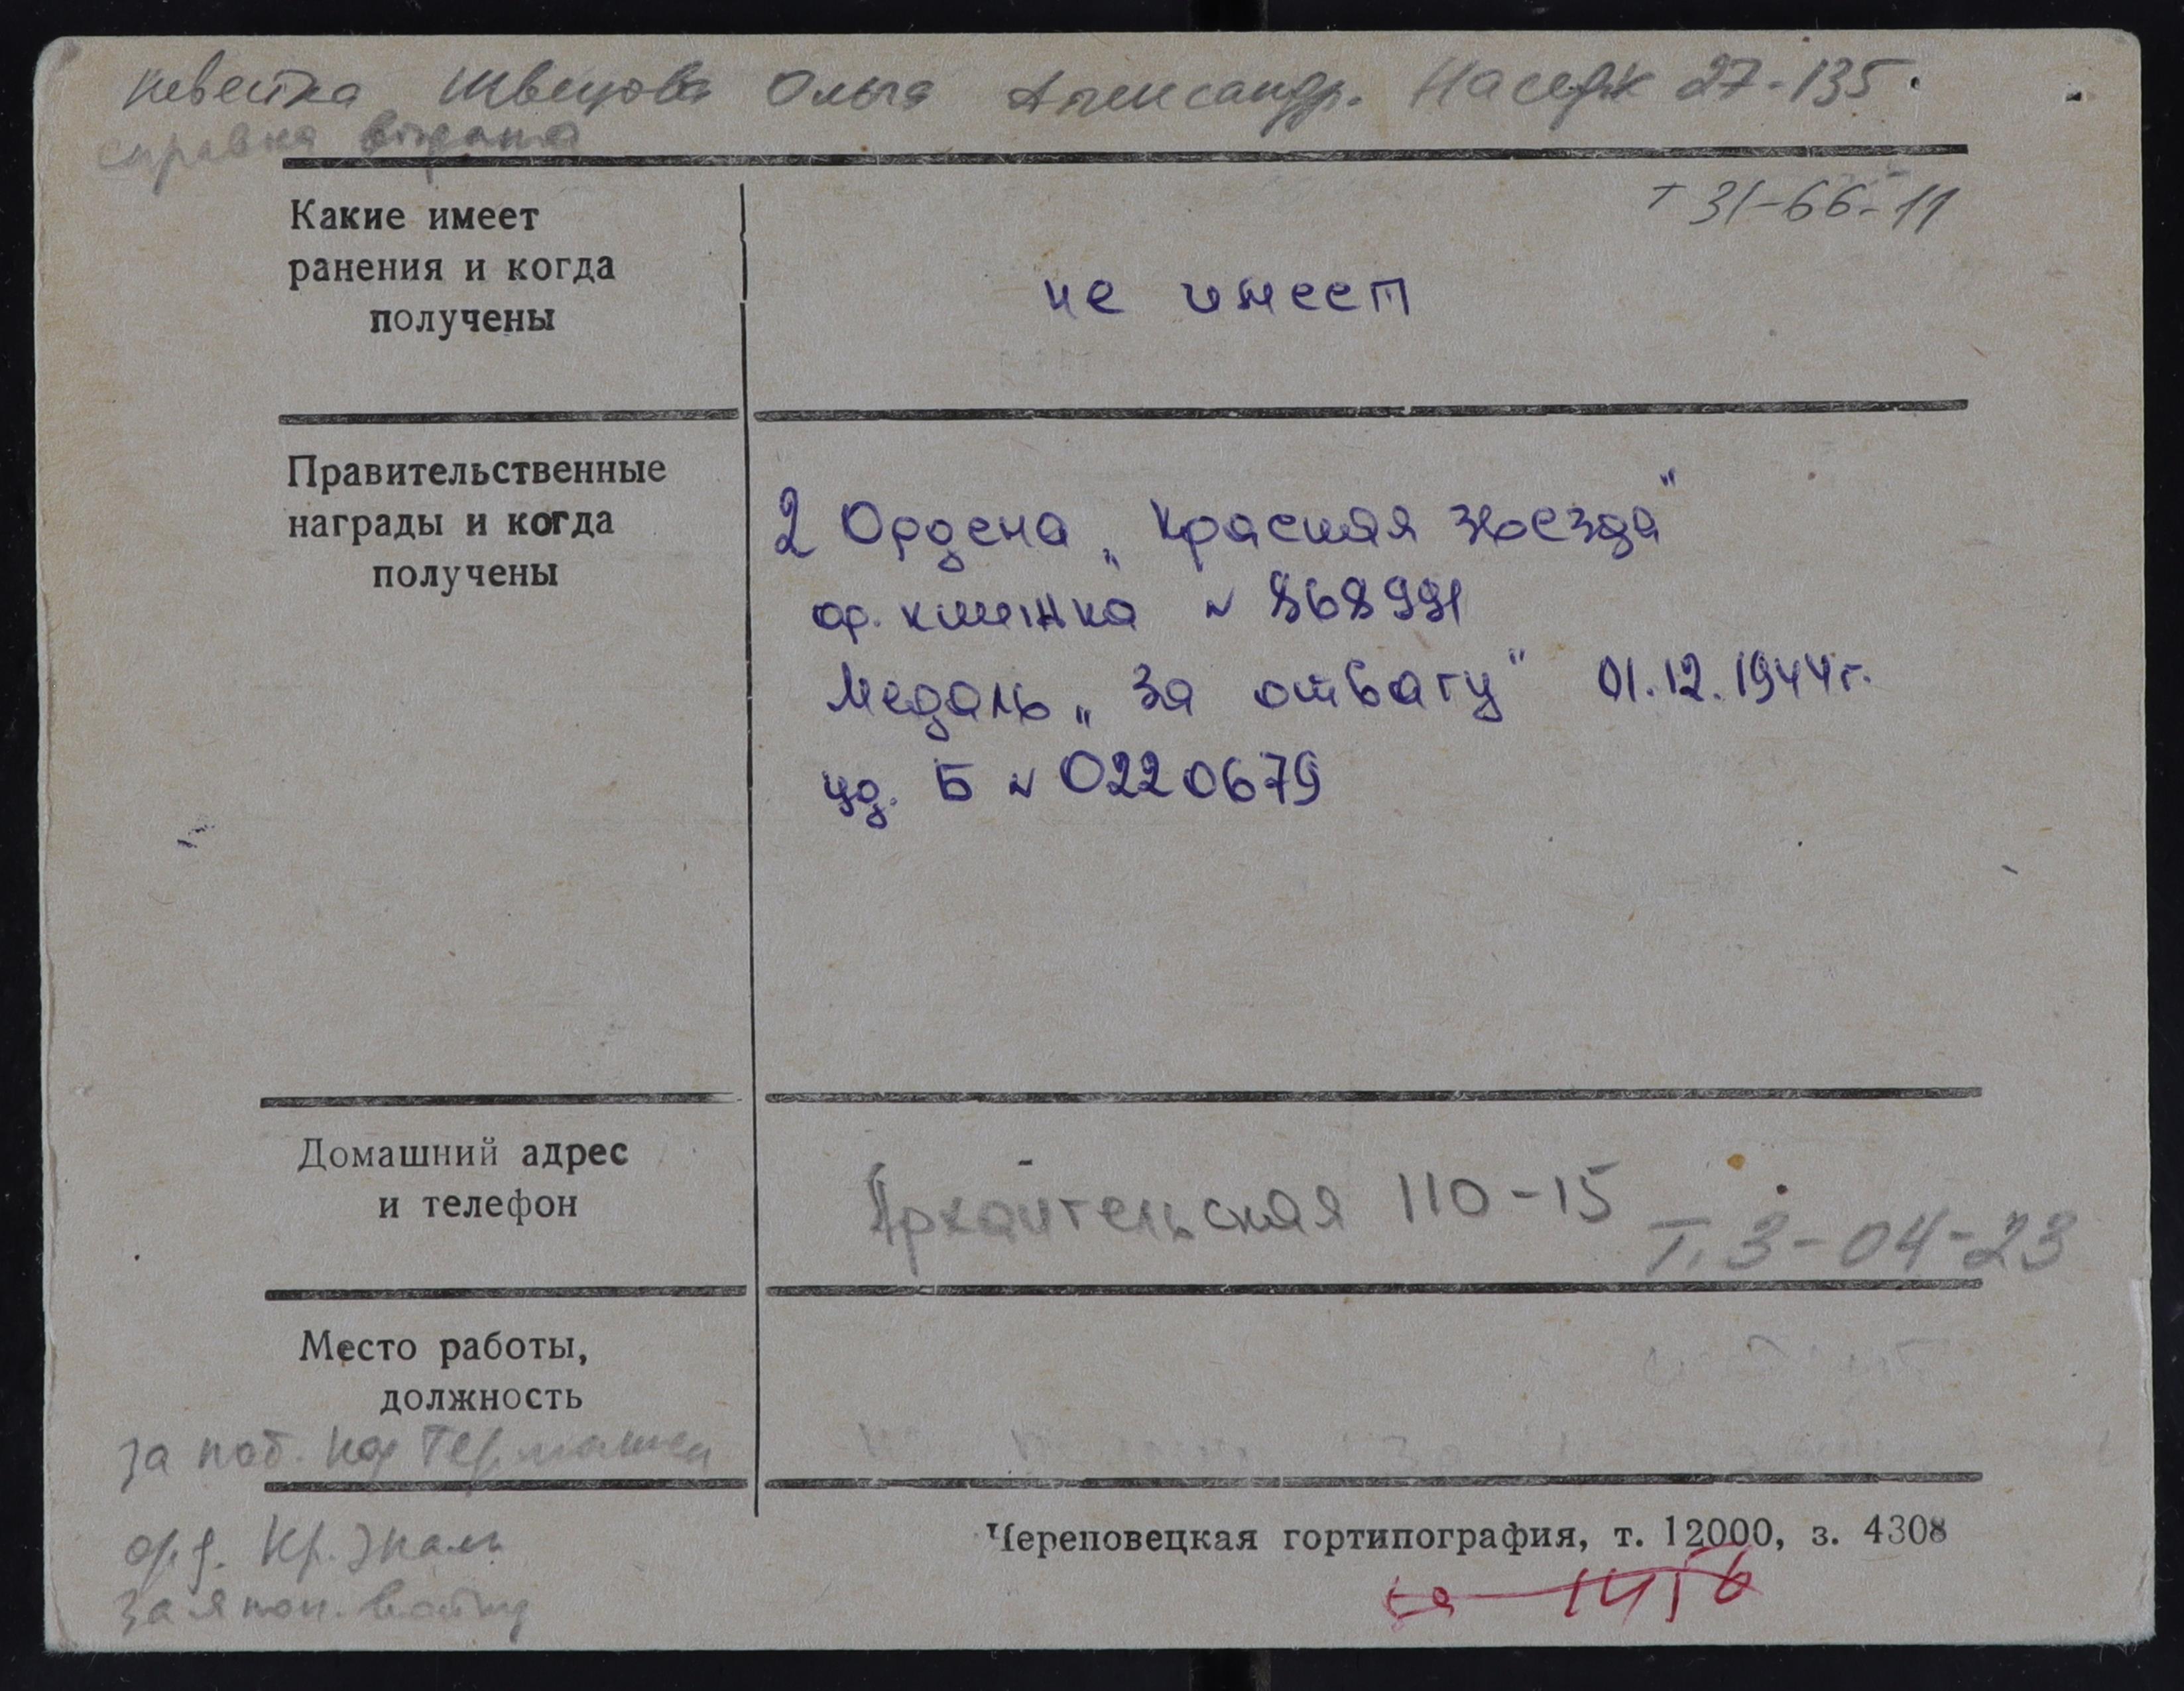 невестка Швецова Ольга Александр. Наседк 27-135.
справка выдана
Т 31-66-11
Какие имеет
ранения и когда
получены
не имеет
Правительственные
награды и когда
получены
2 Ордена „Красная звезда"
ор. книжка № 868991
Медаль „За отвагу" 01.12.1944 г.
уд. Б № 0220679
Домашний адрес
и телефон
Архангельская 110-15
Т. 3-04-23
Место работы,
должность
за поб. над Германией
орд. Кр. Знам
за япон. войну
Череповецкая гортипография, т. 12000, з. 4308
1456